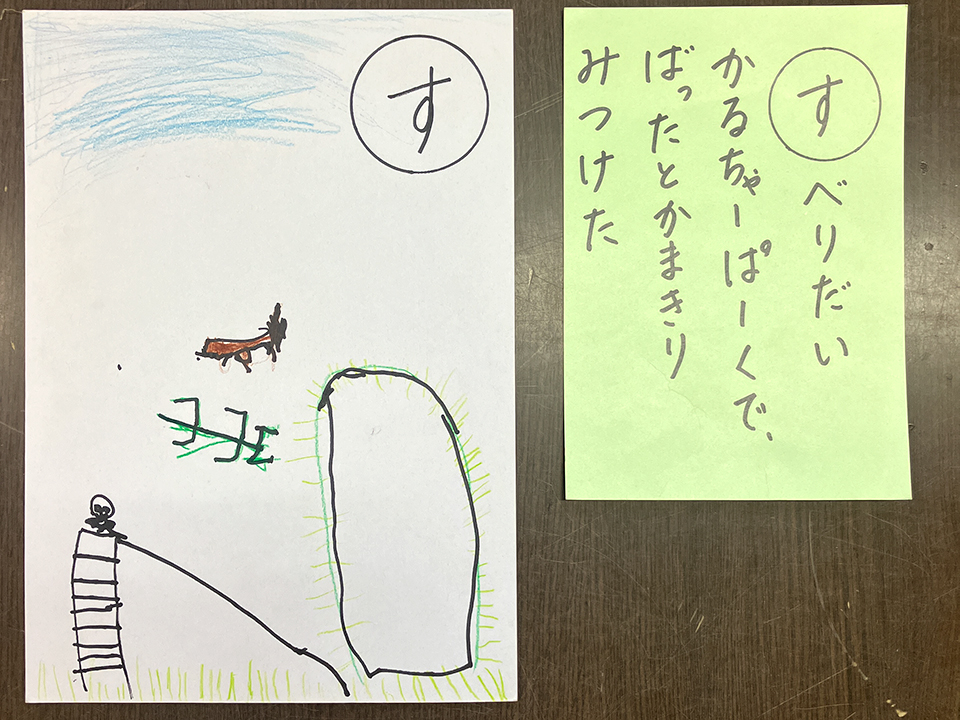 す
すべりだい
かるちゃーぱーくで、
ばったとかまきり
みつけた